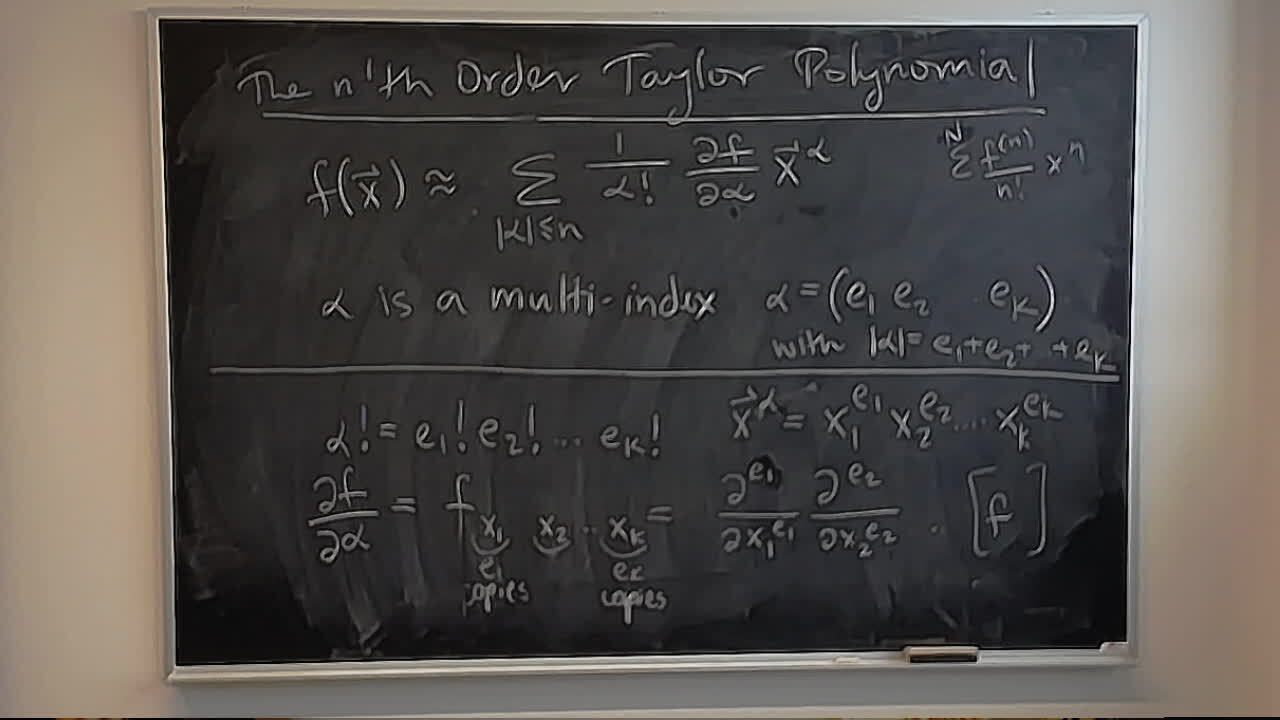 The n'th Order Taylor Polynomial
f(x⃗) ≈ ∑_{|α|≤n} 1/α! ∂f/∂α x⃗^α    ∑^N f^(n)/n! x^n
α is a multi-index α = (e₁ e₂ e_k)
with |α| = e₁+e₂+ +e_k
α! = e₁! e₂! ... e_k!    x⃗^α = x₁^{e₁} x₂^{e₂} .... x_k^{e_k}
∂f/∂α = f_{x₁ x₂ .. x_k} = ∂^{e₁}/∂x₁^{e₁} ∂^{e₂}/∂x₂^{e₂} . [f]
e₁ e_k
copies copies